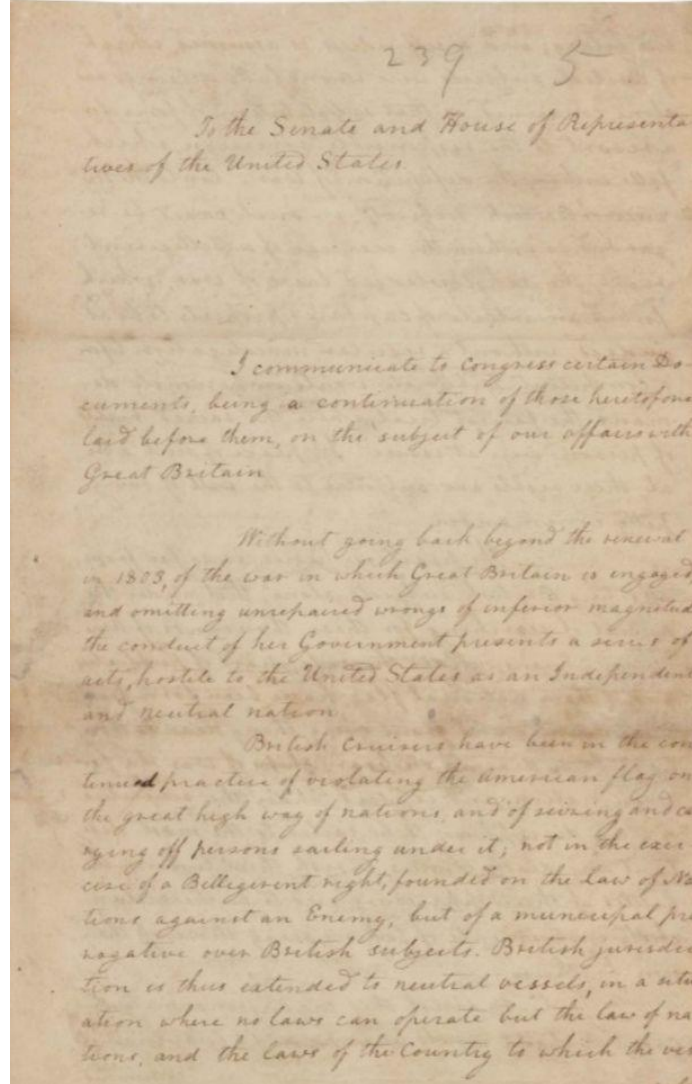 239 5
To the Senate and House of Representa
tives of the United States
I communicate to Congress certain Do-
cuments, being a continuation of those heretofore
laid before them, on the subject of our affairs with
Great Britain
Without going back beyond the renewal
in 1803, of the war in which Great Britain is engaged,
and omitting unrepaired wrongs of inferior magnitud
the conduct of her Government presents a series of
acts, hostile to the United States as an Independent
and neutral nation
British Cruisers have been in the con
tinued practice of violating the American flag on
the great high way of nations, and of seizing and ca
rying off persons sailing under it; not in the exer
cise of a Belligerent right, founded on the law of Na
tions against an Enemy, but of a municipal pre
rogative over British subjects. British jurisdic
tion is thus extended to neutral vessels, in a situ
ation where no laws can operate but the law of na
tions, and the laws of the Country to which the ves